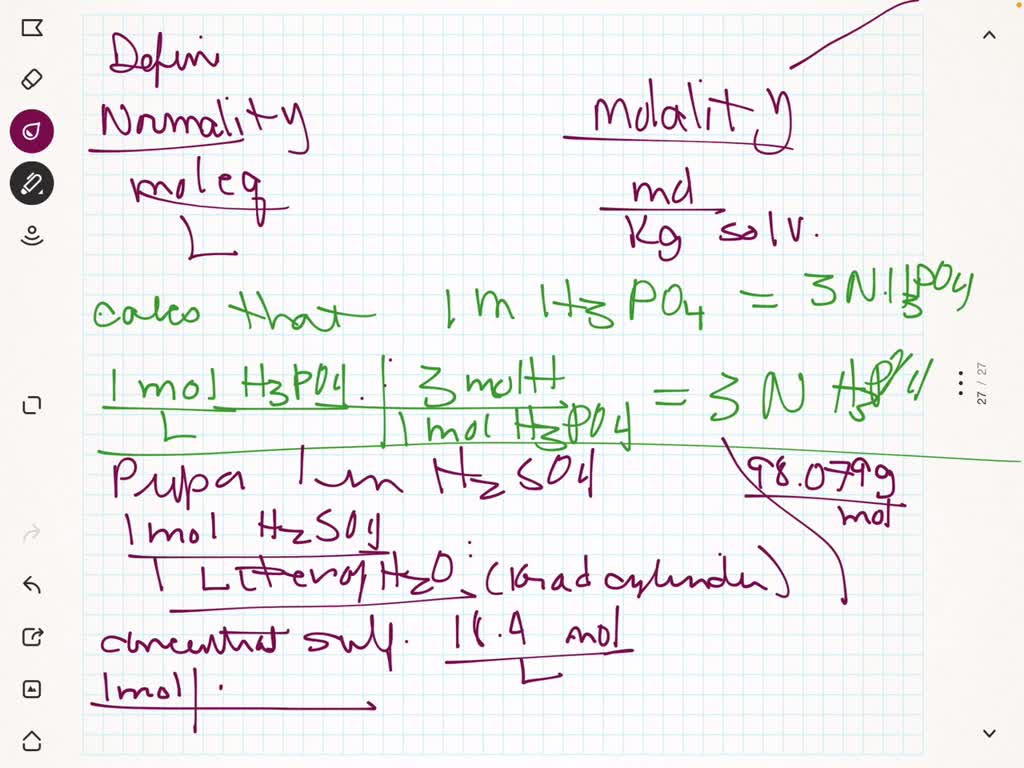 Defin
Normality Molality
mol eq mol
L Kg solv.
calcs that 1 m H3PO4 = 3 N H3PO4
1 mol H3PO4 3 mol H = 3 N H3PO4
L 1 mol H3PO4
Prepa 1 m H2SO4 98.079g
mol
1 mol H2SO4
1 Liter of H2O (Grad cylinder)
concentrat sulf. 18.4 mol
L
1 mol
27 / 27